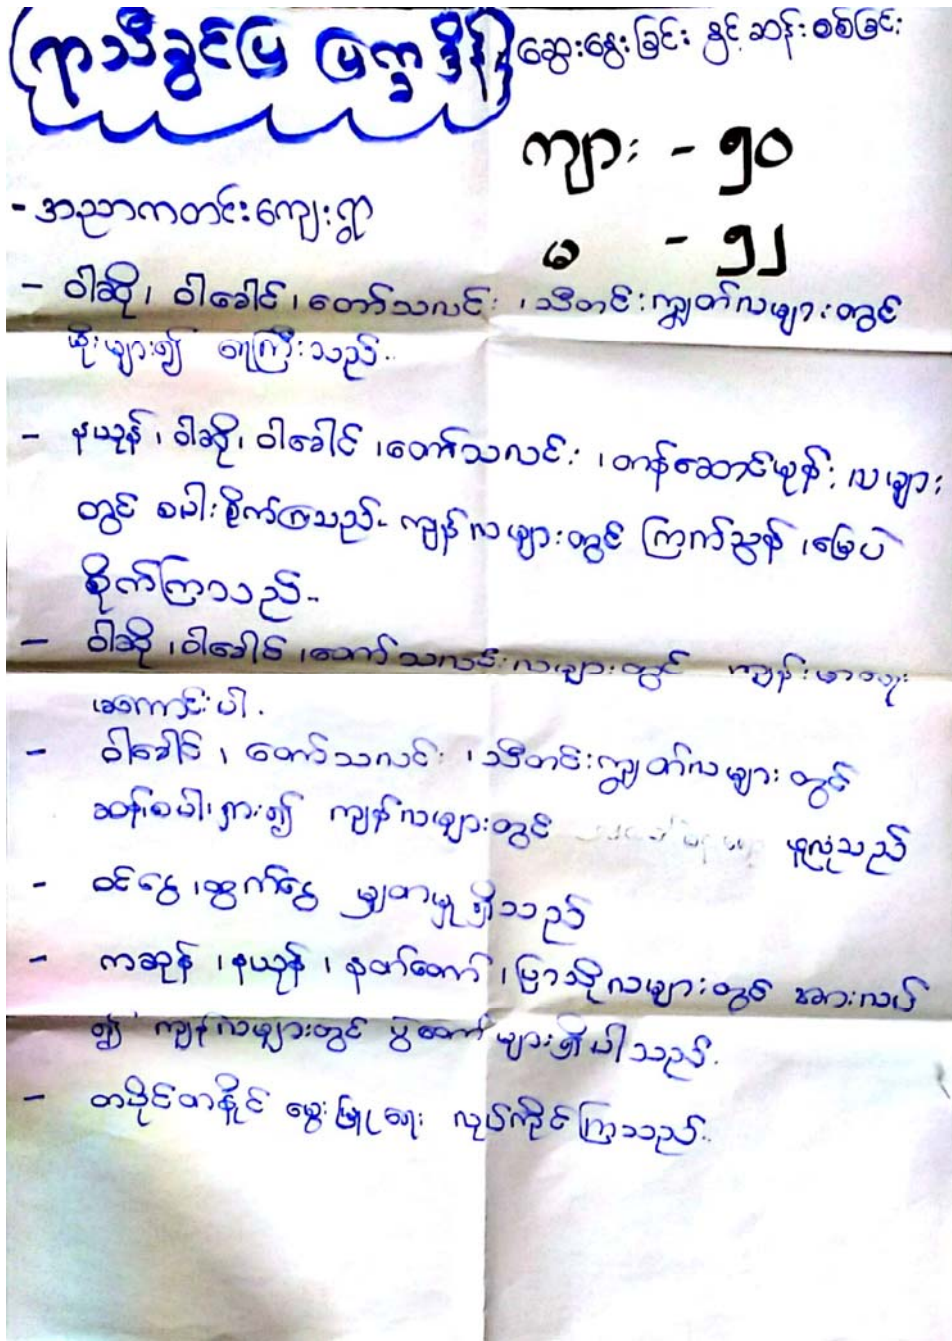 ရာသီခွင်ပြ ပြက္ခဒိန် ဆွေးနွေးခြင်း နှင့် ဆန်းစစ်ခြင်း
ကျား - ၅၀
မ - ၅၂
- အညာကတင်းကျေးရွာ
- ဝါဆို၊ ဝါခေါင်၊ တော်သလင်း ၊ သီတင်းကျွတ်လများတွင်
မိုးများ၍ ရေကြီးသည်..
- နယုန်၊ ဝါဆို၊ ဝါခေါင် ၊တော်သလင်း ၊တန်ဆောင်မုန်း လများ
တွင် စပါးစိုက်ကြသည်.. ကျန်လများတွင် ကြက်သွန် ၊မြေပဲ
စိုက်ကြသည်..
- ဝါဆို ၊ဝါခေါင် ၊တော်သလင်းလများတွင် ကျန်းမာရေး
မကောင်းပါ.
- ဝါခေါင် ၊ တော်သလင်း ၊သီတင်းကျွတ်လများ တွင်
ဆန်စပါးရှား၍ ကျန်လများတွင် ဖူလုံသည်
- ဝင်ငွေ ၊ထွက်ငွေ မျှတမှု ရှိသည်
- ကဆုန် ၊နယုန် ၊ နတ်တော် ၊ပြာသိုလများတွင် အားလပ်
၍ ကျန်လများတွင် ပွဲတော်များရှိပါသည်.
- တပိုင်တနိုင် မွေးမြူရေး လုပ်ကိုင်ကြသည်..